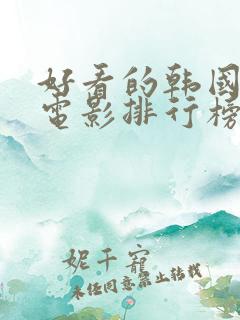 好看的韩国
电影排行榜
妮千寵
未任同意禁止转载